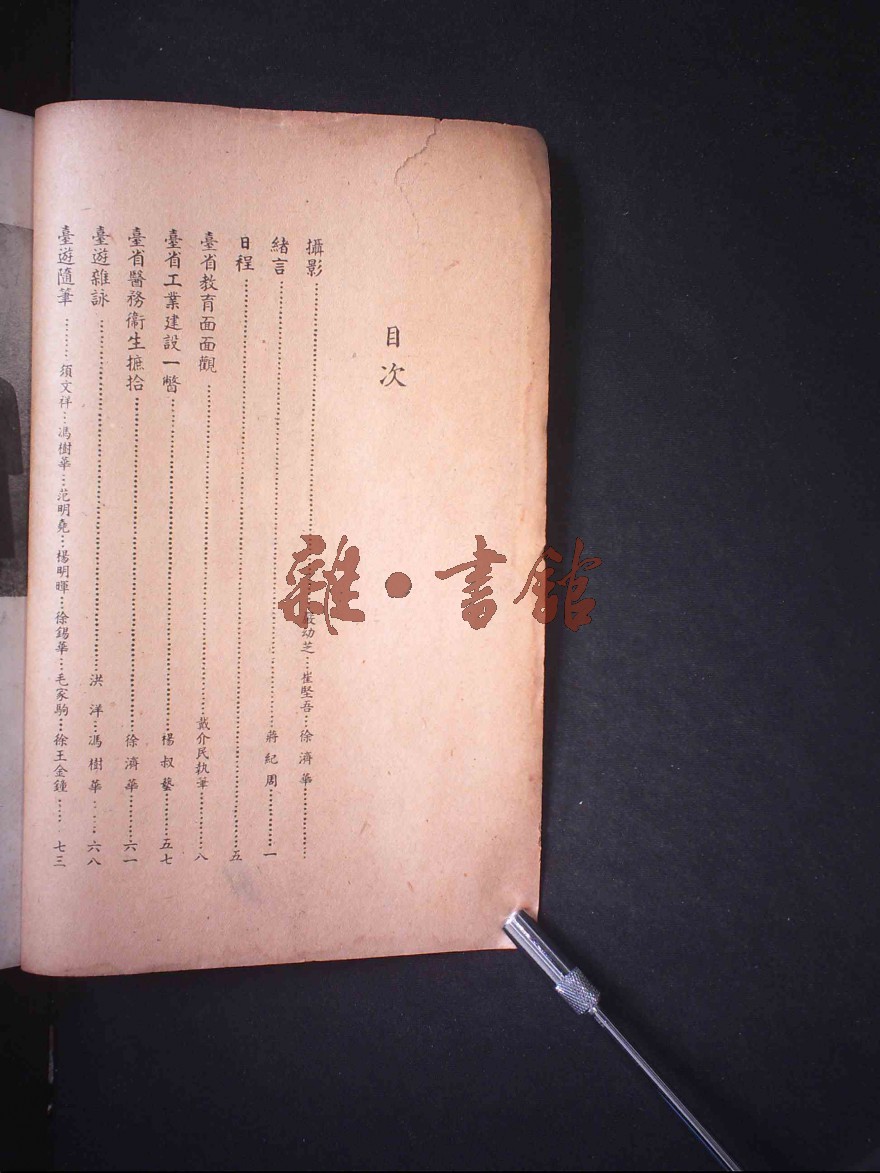 目次
攝影……幼芝…崔堅吾…徐濟華……
緒言……蔣紀周……一
日程……五
臺省教育面面觀……戴介民執筆……八
臺省工業建設一瞥……楊叔藝……五七
臺省醫務衞生摭拾……徐濟華……六一
臺遊雜詠……洪洋…馮樹華……六八
臺遊隨筆……須文祥…馮樹華…范明堯…楊明暉…徐錫華…毛家駒…徐王金鍾……七三
雜•書館